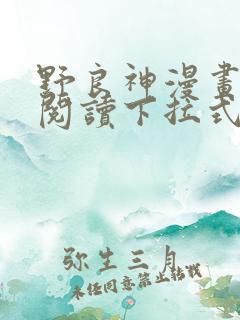 野良神漫畫
閱讀下拉式
弥生三月
未任同意禁止转载